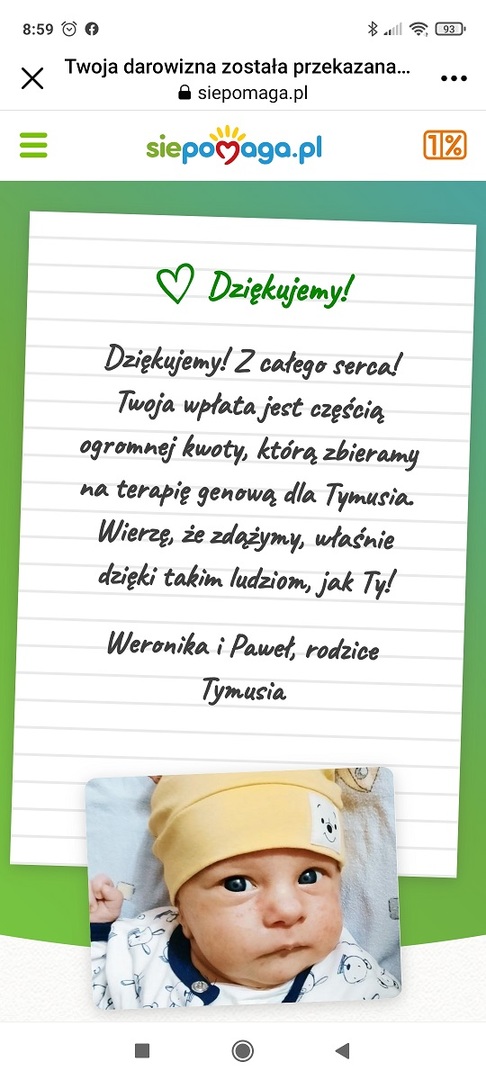 8:59
93
Twoja darowizna została przekazana...
siepomaga.pl
siepomaga.pl
1%
Dziękujemy!
Dziękujemy! Z całego serca!
Twoja wpłata jest częścią
ogromnej kwoty, którą zbieramy
na terapię genową dla Tymusia.
Wierzę, że zdążymy, właśnie
dzięki takim ludziom, jak Ty!
Weronika i Paweł, rodzice
Tymusia